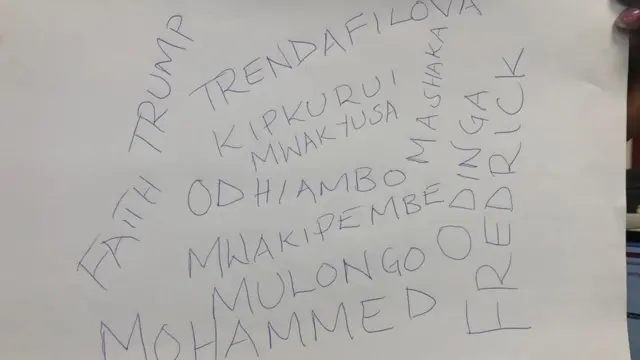 TRENDAFILOVA
KIPKURUI
MWAKTUSA
ODHIAMBO
MWAKIPEMBE
MULONGO
MOHAMMED
FAITH TRUMP
MASHAKA
ODINGA
FREDRICK